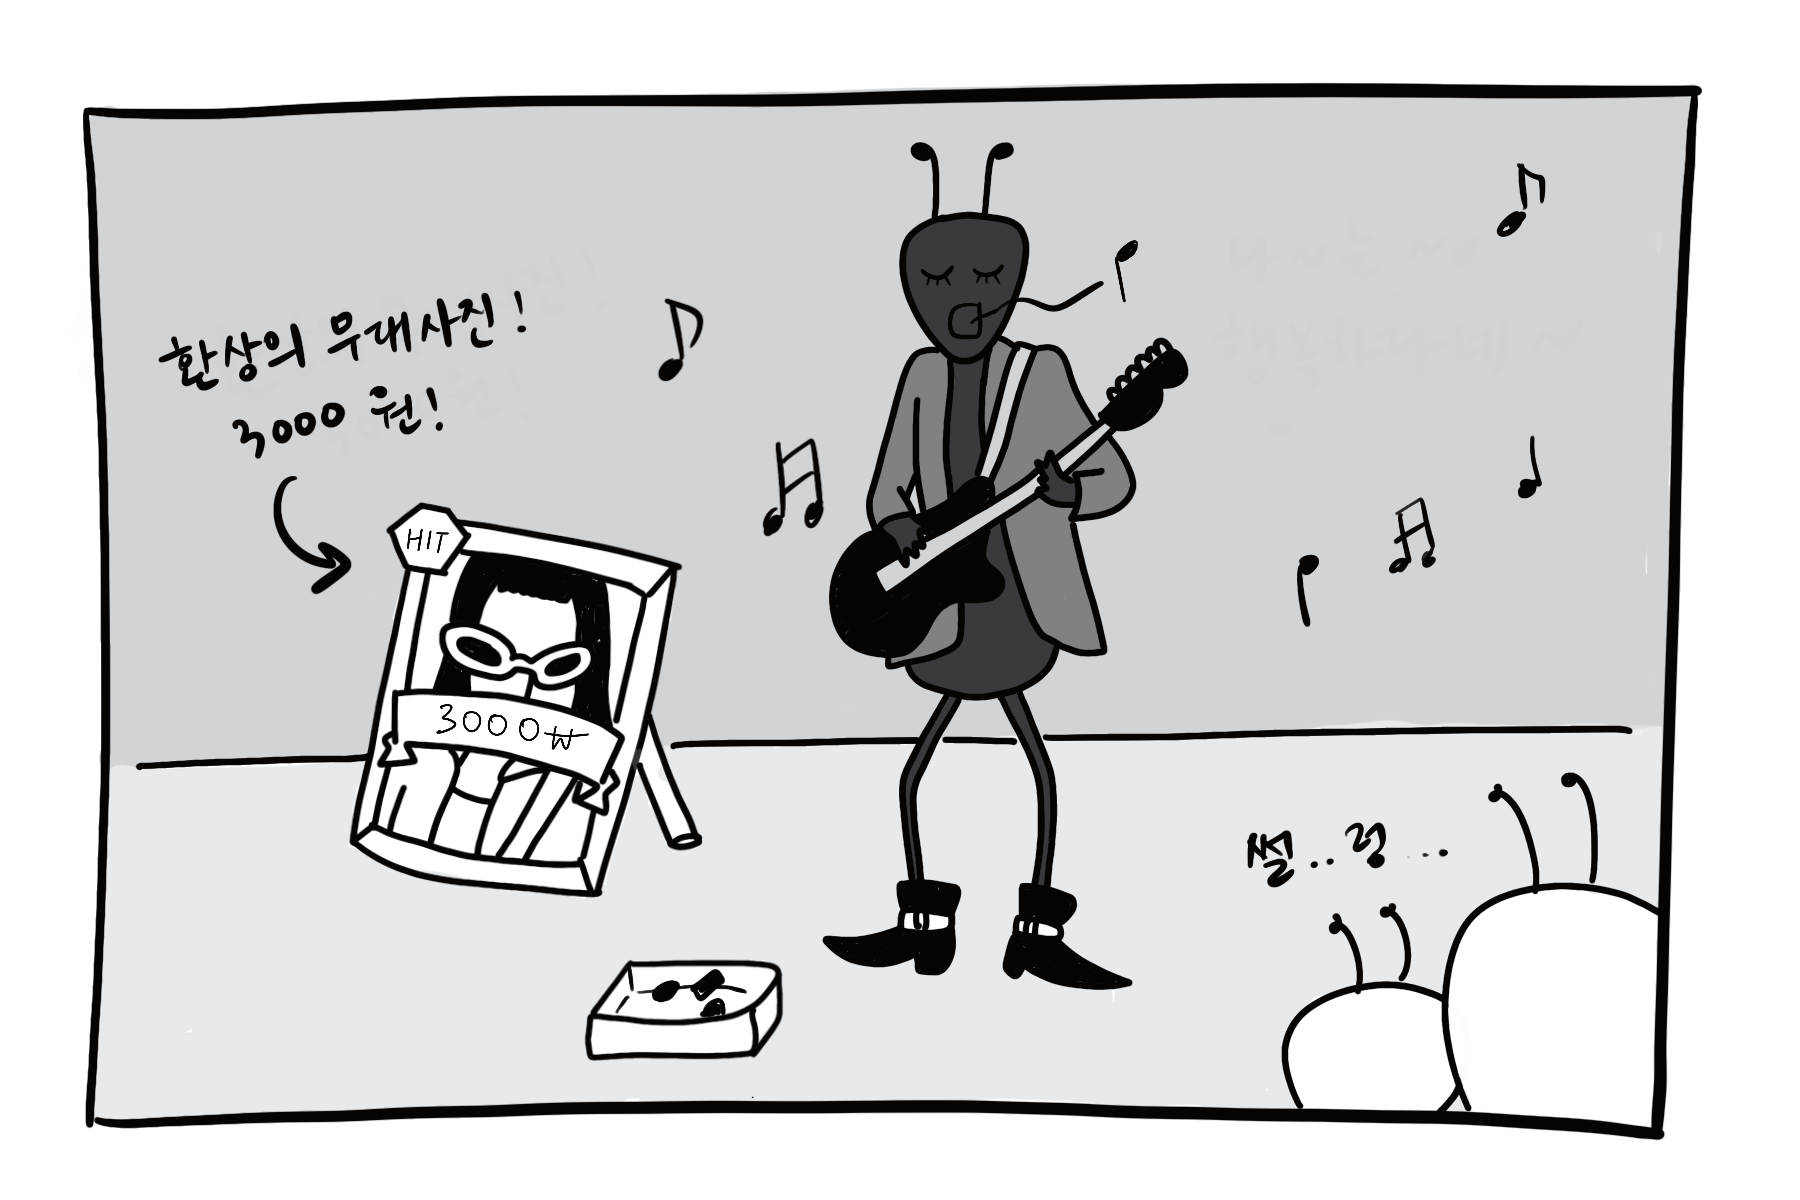 환상의 무대사진!
3000 원!
HIT
3000₩
나~는 ~♪
행복하다네 ~
썰..렁...